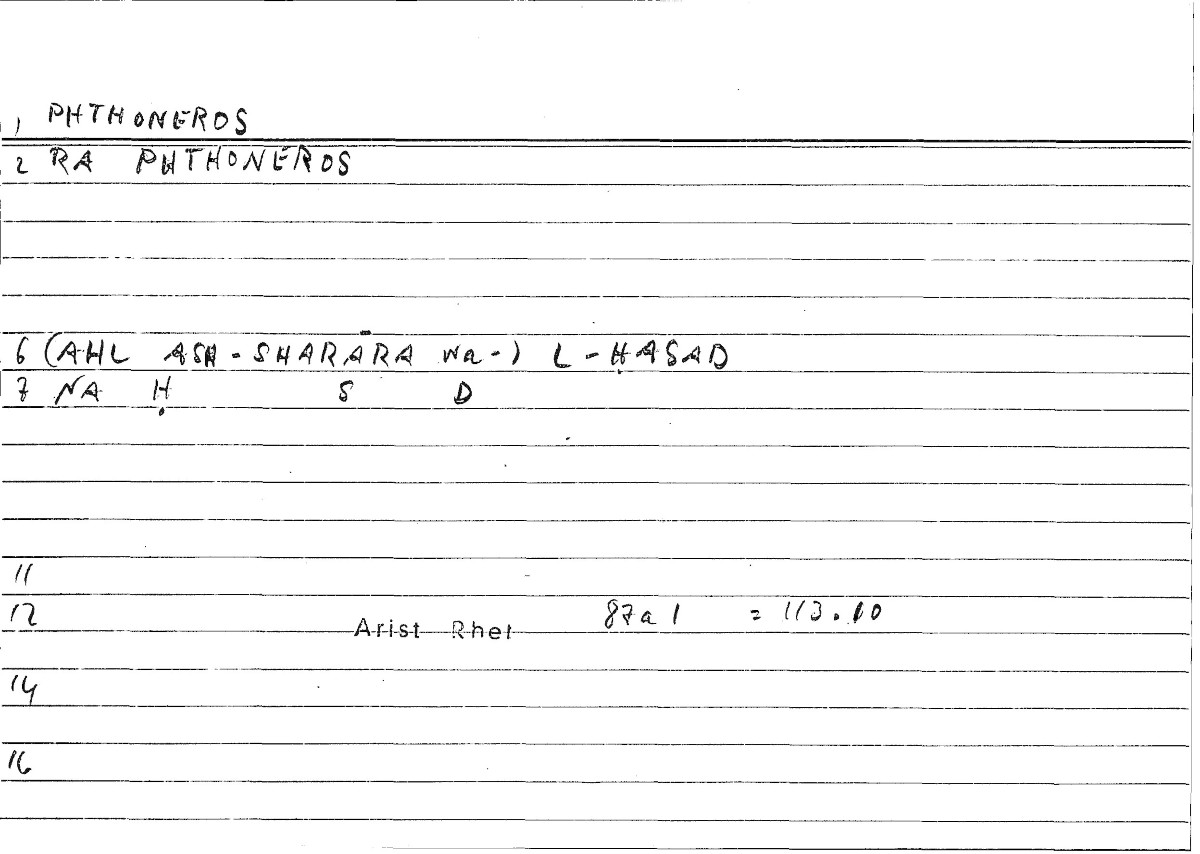 1 PHTHONEROS
2 RA PHTHONEROS
6 (AHL ASH-SHARĀRA wa-) L-ḤASAD
7 NA Ḥ S D
11
12 Arist Rhet 87a1 = 113.10
14
16